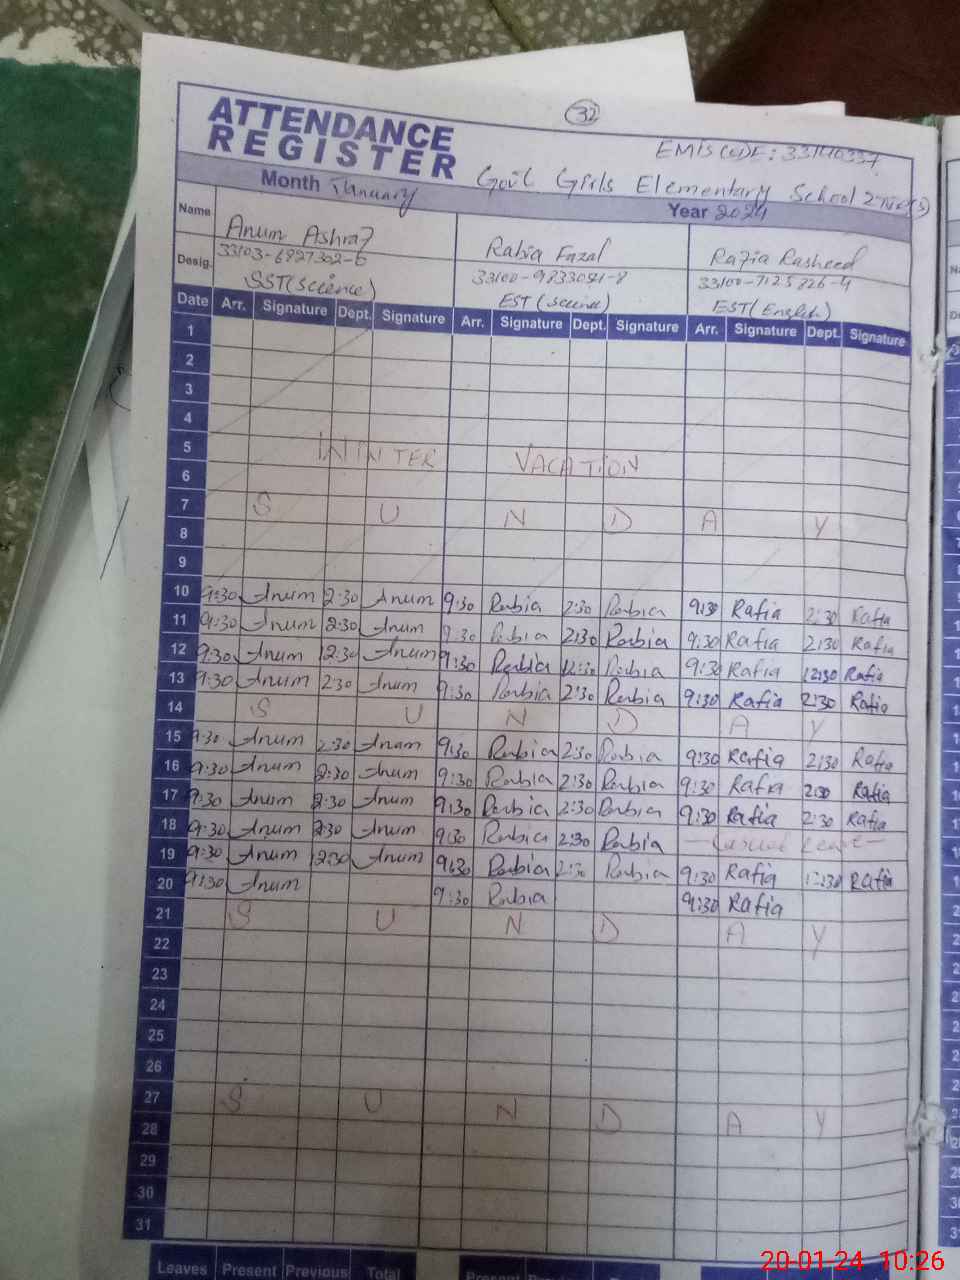 32
ATTENDANCE
REGISTER
EMIS CODE: 33140337
Month January Govt Girls Elementary School
Year 2024
Name Anum Ashraf Rabia Fazal Rafia Rasheed
Desig. 33103-6827302-6 33100-9833051-8 33100-7125826-4
SST (Science) EST (Science) EST (English)
Date Arr. Signature Dept. Signature Arr. Signature Dept. Signature Arr. Signature Dept. Signature
1
2
3
4
5 WINTER VACATION
6
7 S U N D A Y
8
9
10 9:30 Anum 2:30 Anum 9:30 Rabia 2:30 Rabia 9:30 Rafia 2:30 Rafia
11 9:30 Anum 2:30 Anum 9:30 Rabia 2:30 Rabia 9:30 Rafia 2:30 Rafia
12 9:30 Anum 12:30 Anum 9:30 Rabia 12:30 Rabia 9:30 Rafia 12:30 Rafia
13 9:30 Anum 2:30 Anum 9:30 Rabia 2:30 Rabia 9:30 Rafia 2:30 Rafia
14 S U N D A Y
15 9:30 Anum 2:30 Anum 9:30 Rabia 2:30 Rabia 9:30 Rafia 2:30 Rafia
16 9:30 Anum 2:30 Anum 9:30 Rabia 2:30 Rabia 9:30 Rafia 2:30 Rafia
17 9:30 Anum 2:30 Anum 9:30 Rabia 2:30 Rabia 9:30 Rafia 2:30 Rafia
18 9:30 Anum 2:30 Anum 9:30 Rabia 2:30 Rabia Casual Leave
19 9:30 Anum 12:30 Anum 9:30 Rabia 2:30 Rabia 9:30 Rafia 12:30 Rafia
20 9:30 Anum 9:30 Rabia 9:30 Rafia
21 S U N D A Y
22
23
24
25
26
27 S U N D A Y
28
29
30
31
Leaves Present Previous Total Present
20-01-24 10:26